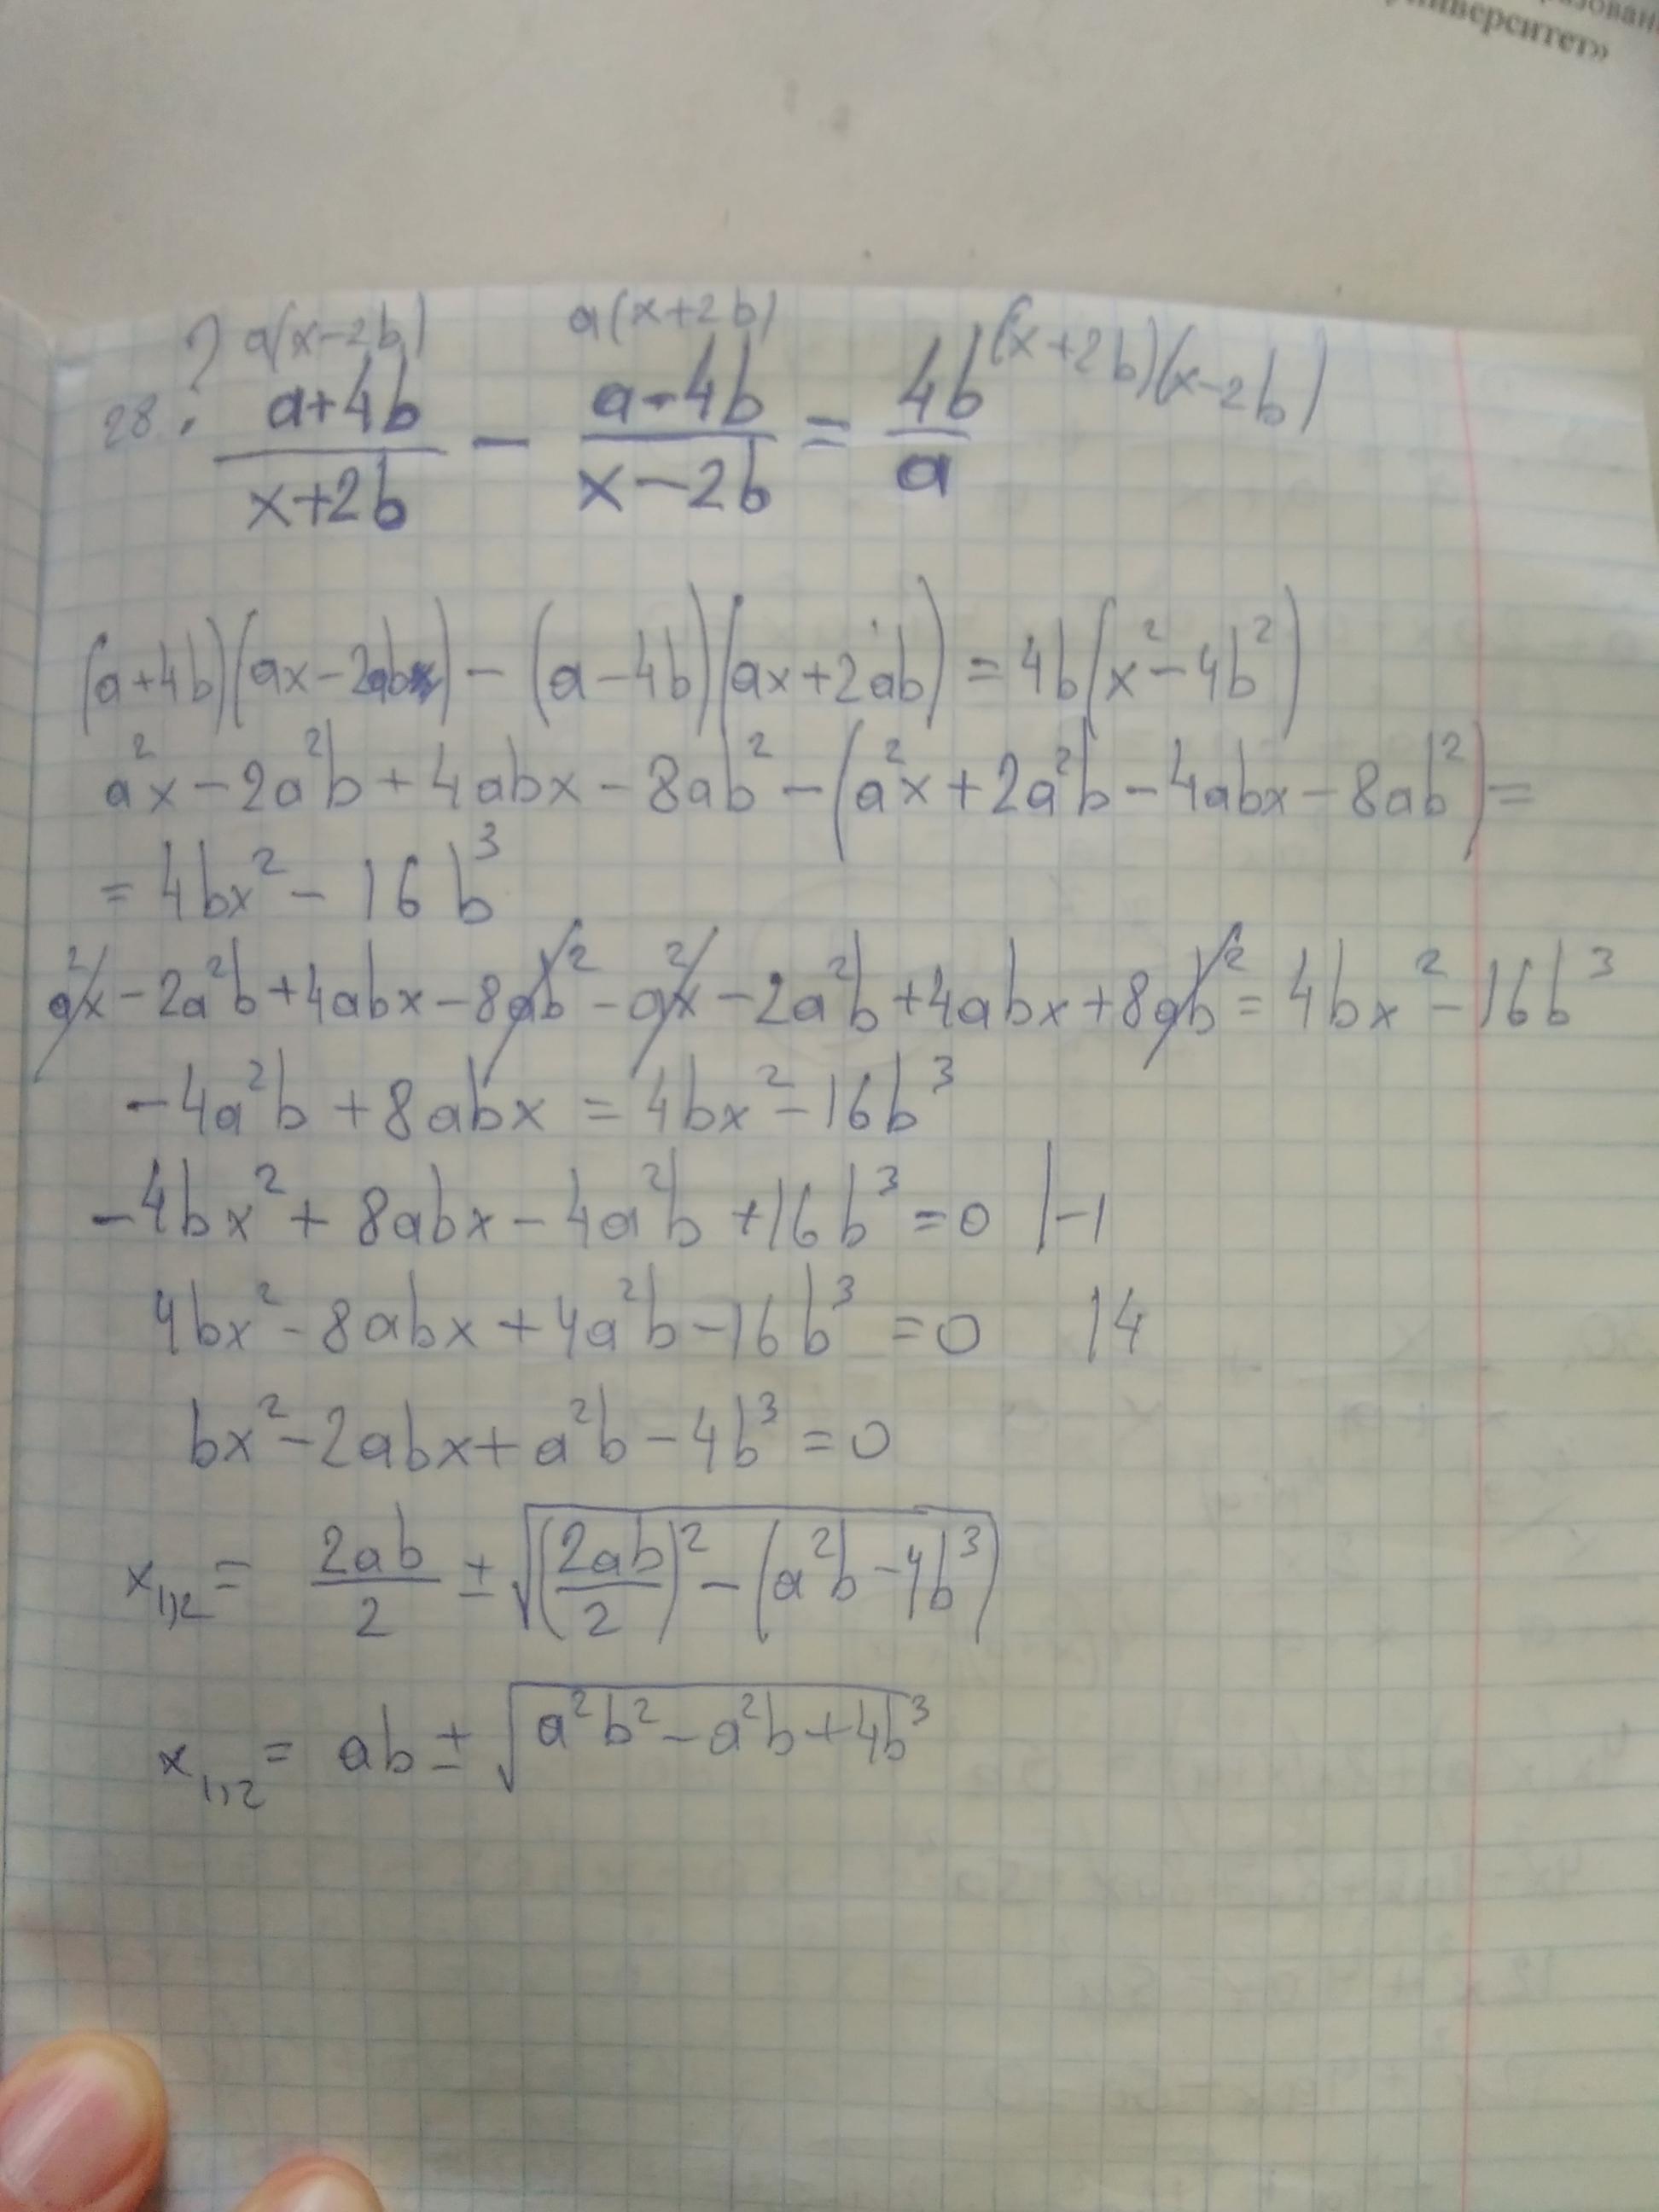 университет»
a(x-2b) a(x+2b) (x+2b)(x-2b)
28. ? (a+4b)/(x+2b) - (a-4b)/(x-2b) = 4b/a
(a+4b)(ax-2ab) - (a-4b)(ax+2ab) = 4b(x²-4b²)
a²x - 2a²b + 4abx - 8ab² - (a²x + 2a²b - 4abx - 8ab²) =
= 4bx² - 16b³
a²x - 2a²b + 4abx - 8ab² - a²x - 2a²b + 4abx + 8ab² = 4bx² - 16b³
-4a²b + 8abx = 4bx² - 16b³
-4bx² + 8abx - 4a²b + 16b³ = 0 |-1
4bx² - 8abx + 4a²b - 16b³ = 0 |4
bx² - 2abx + a²b - 4b³ = 0
x₁,₂ = 2ab/2 ± √((2ab/2)² - (a²b - 4b³))
x₁,₂ = ab ± √(a²b² - a²b + 4b³)